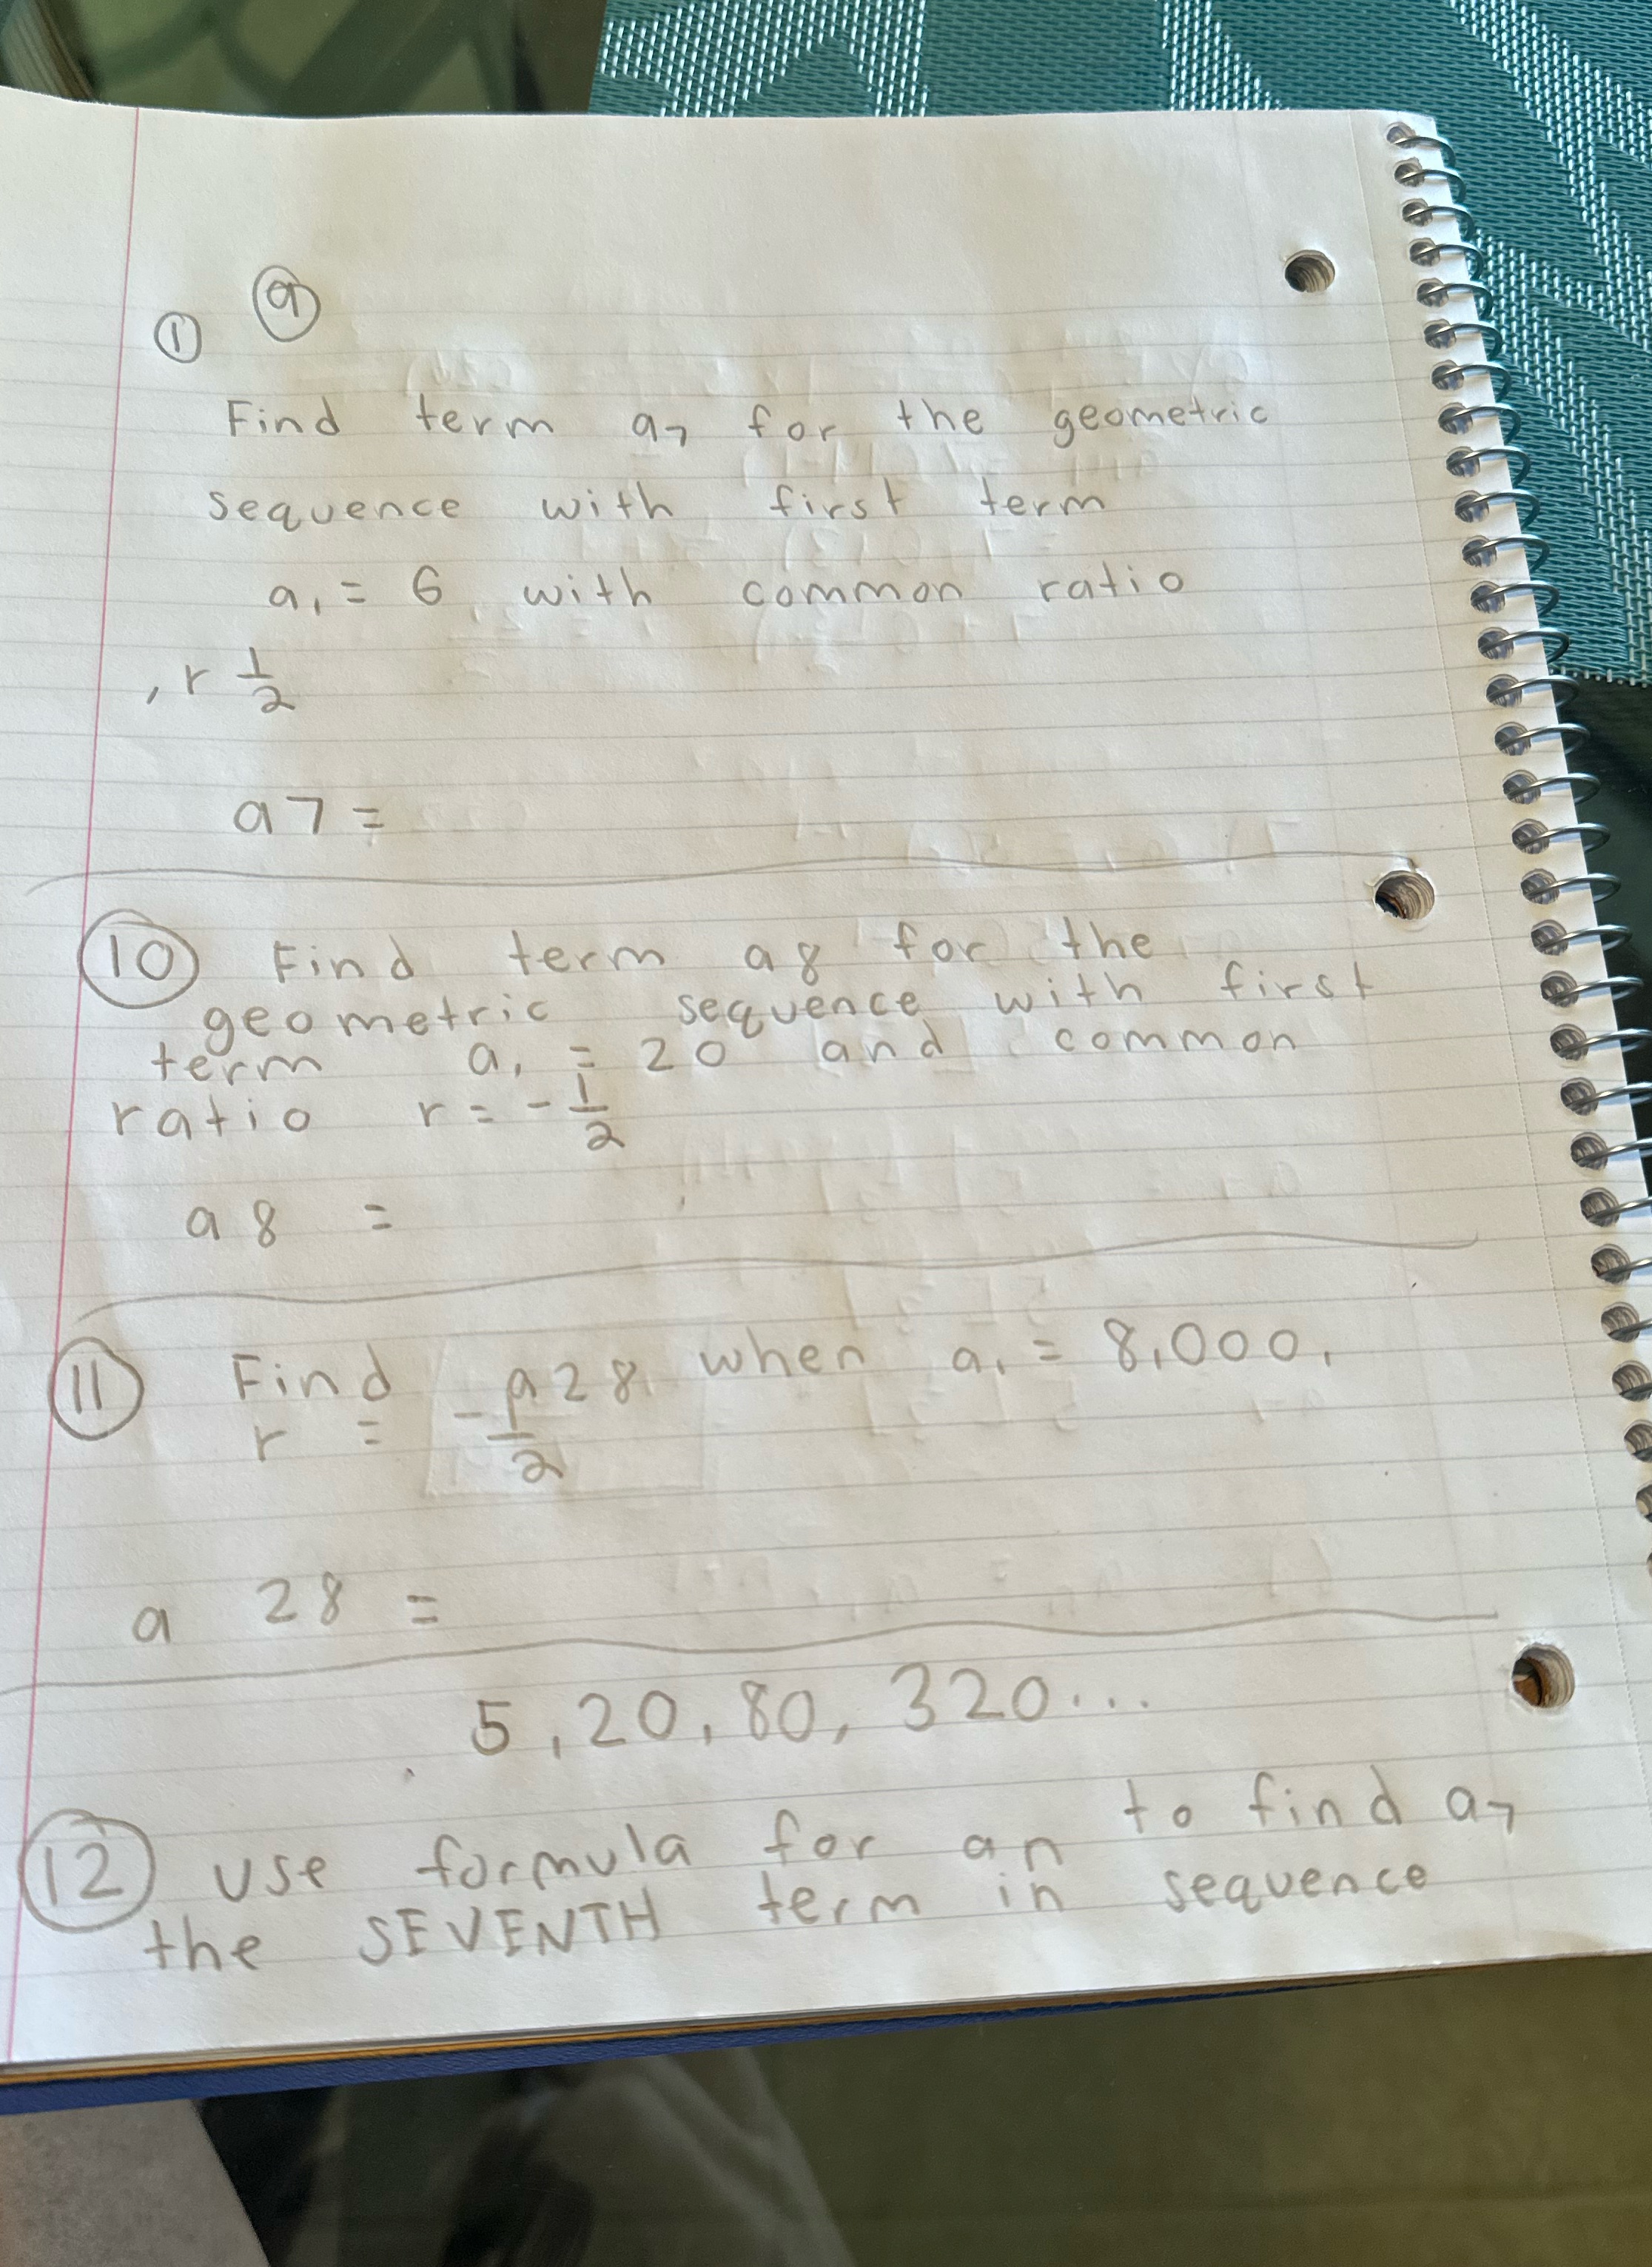 ① ⑨
Find term a₇ for the geometric
sequence with first term
a₁ = 6 with common ratio
, r 1/2
a7 =
⑩ Find term a8 for the
geometric sequence with first
term a₁ = 20 and common
ratio r = - 1/2
a8 =
⑪ Find a28 when a₁ = 8,000,
r = - 1/2
a 28 =
5, 20, 80, 320...
⑫ use formula for an to find a₇
the SEVENTH term in sequence